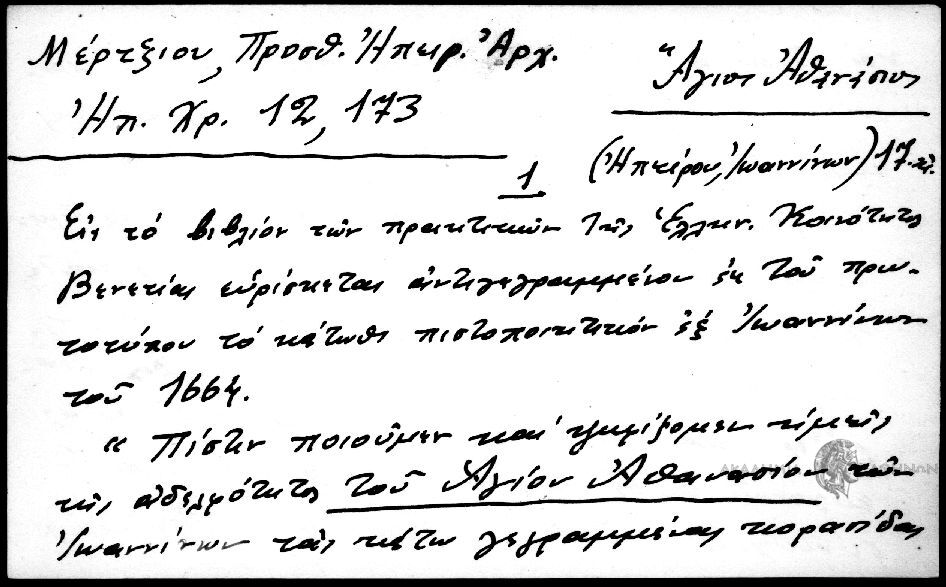 Μέρτζιου, Προσθ. Ἠπειρ. Ἀρχ.
Ἠπ. Χρ. 12, 173
Ἅγιος Ἀθανάσιος
(Ἠπείρου, Ἰωαννίνων) 17
1
Εἰς τό βιβλίον τῶν πρακτικῶν τῆς Ἑλλην. Κοινότητος
Βενετίας εὑρίσκεται ἀντιγεγραμμένον ἐκ τοῦ πρω-
τοτύπου τό κάτωθι πιστοποιητικόν ἐξ Ἰωαννίνων
τοῦ 1664.
« Πίστιν ποιοῦμεν καί ἡμεῖς
τῆς ἀδελφότητος τοῦ Ἁγίου Ἀθανασίου τῶν
Ἰωαννίνων τάς κάτω γεγραμμένας κορασίδας